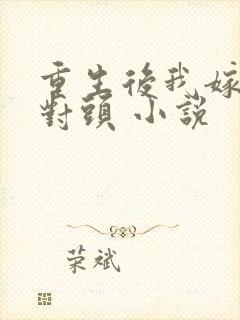 重生後我嫁
對頭 小說
荣斌